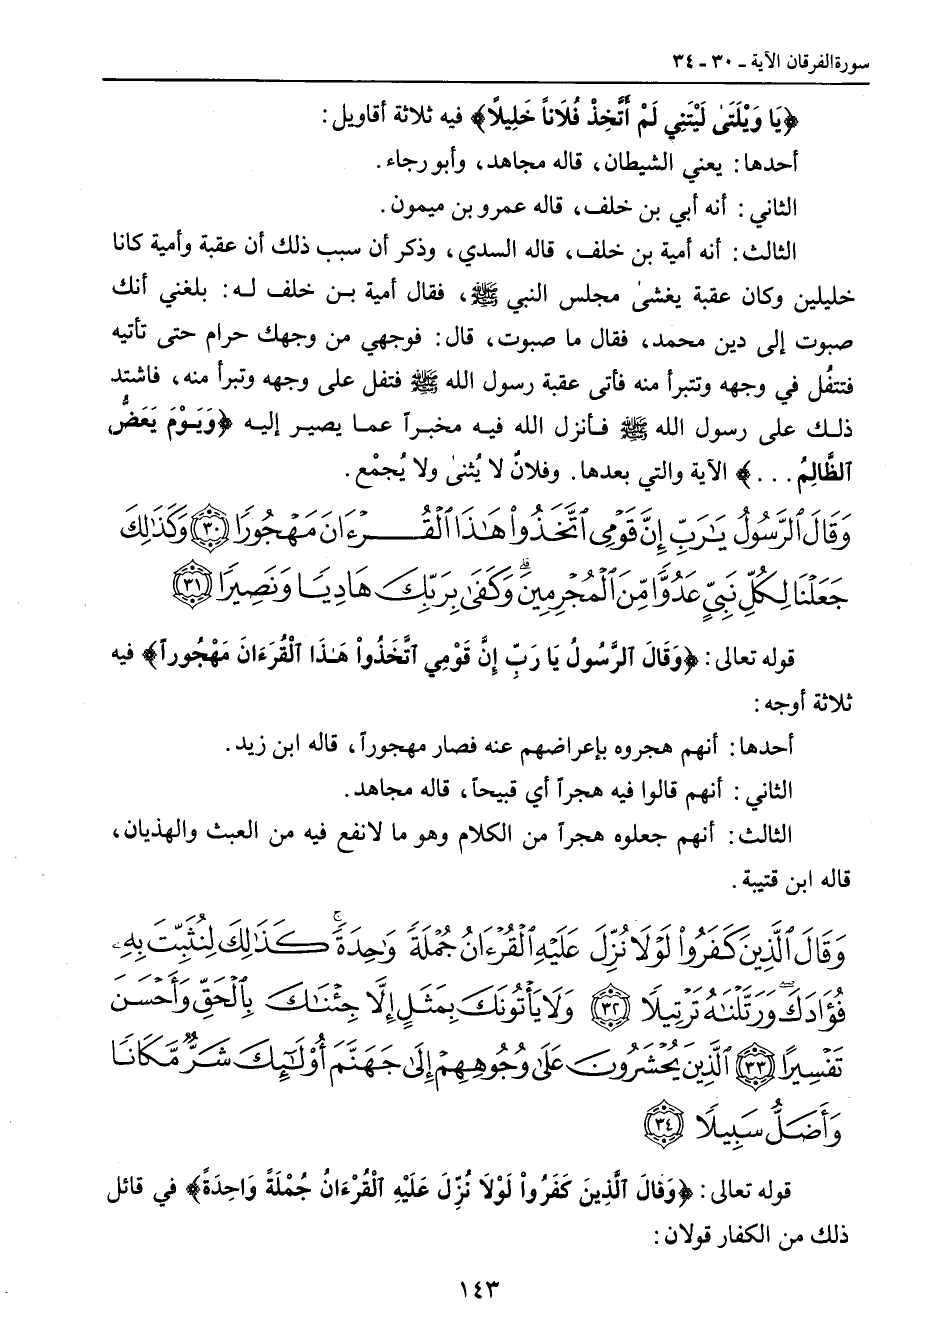 سورة الفرقان الآية ـ ٣٠ ـ ٣٤
﴿يَا وَيْلَتَىٰ لَيْتَنِي لَمْ أَتَّخِذْ فُلَاناً خَلِيلاً﴾ فيه ثلاثة أقاويل:
أحدها: يعني الشيطان، قاله مجاهد، وأبو رجاء.
الثاني: أنه أبي بن خلف، قاله عمرو بن ميمون.
الثالث: أنه أمية بن خلف، قاله السدي، وذكر أن سبب ذلك أن عقبة وأمية كانا
خليلين وكان عقبة يغشىٰ مجلس النبي ﷺ، فقال أمية بـن خلف لـه: بلغني أنك
صبوت إلى دين محمد، فقال ما صبوت، قال: فوجهي من وجهك حرام حتى تأتيه
فتتفُل في وجهه وتتبرأ منه فأتى عقبة رسول الله ﷺ فتفل على وجهه وتبرأ منه، فاشتد
ذلـك على رسول الله ﷺ فـأنزل الله فيـه مخبـراً عمـا يصيـر إليـه ﴿وَيَـوْمَ يَعَضُّ
ٱلظَّالِمُ . . .﴾ الآية والتي بعدها. وفلانٌ لا يُثنىٰ ولا يُجمْع.
وَقَالَ ٱلرَّسُولُ يَٰرَبِّ إِنَّ قَوْمِى ٱتَّخَذُوا۟ هَٰذَا ٱلْقُرْءَانَ مَهْجُورًا ٣٠ وَكَذَٰلِكَ
جَعَلْنَا لِكُلِّ نَبِىٍّ عَدُوًّا مِّنَ ٱلْمُجْرِمِينَ ۗ وَكَفَىٰ بِرَبِّكَ هَادِيًا وَنَصِيرًا ٣١
قوله تعالى: ﴿وَقَالَ ٱلرَّسُولُ يَا رَبِّ إِنَّ قَوْمِي ٱتَّخَذُواْ هَـٰذَا ٱلْقُرَءَانَ مَهْجُوراً﴾ فيه
ثلاثة أوجه:
أحدها: أنهم هجروه بإعراضهم عنه فصار مهجوراً، قاله ابن زيد.
الثاني: أنهم قالوا فيه هجراً أي قبيحاً، قاله مجاهد.
الثالث: أنهم جعلوه هجراً من الكلام وهو ما لانفع فيه من العبث والهذيان،
قاله ابن قتيبة.
وَقَالَ ٱلَّذِينَ كَفَرُوا۟ لَوْلَا نُزِّلَ عَلَيْهِ ٱلْقُرْءَانُ جُمْلَةً وَٰحِدَةً ۚ كَذَٰلِكَ لِنُثَبِّتَ بِهِۦ
فُؤَادَكَ ۖ وَرَتَّلْنَٰهُ تَرْتِيلًا ٣٢ وَلَا يَأْتُونَكَ بِمَثَلٍ إِلَّا جِئْنَٰكَ بِٱلْحَقِّ وَأَحْسَنَ
تَفْسِيرًا ٣٣ ٱلَّذِينَ يُحْشَرُونَ عَلَىٰ وُجُوهِهِمْ إِلَىٰ جَهَنَّمَ أُو۟لَٰٓئِكَ شَرٌّ مَّكَانًا
وَأَضَلُّ سَبِيلًا ٣٤
قوله تعالى: ﴿وَقَالَ ٱلَّذِينَ كَفَرُواْ لَوْلَا نُزِّلَ عَلَيْهِ ٱلْقُرْءَانُ جُمْلَةً وَاحِدَةً﴾ في قائل
ذلك من الكفار قولان:
١٤٣